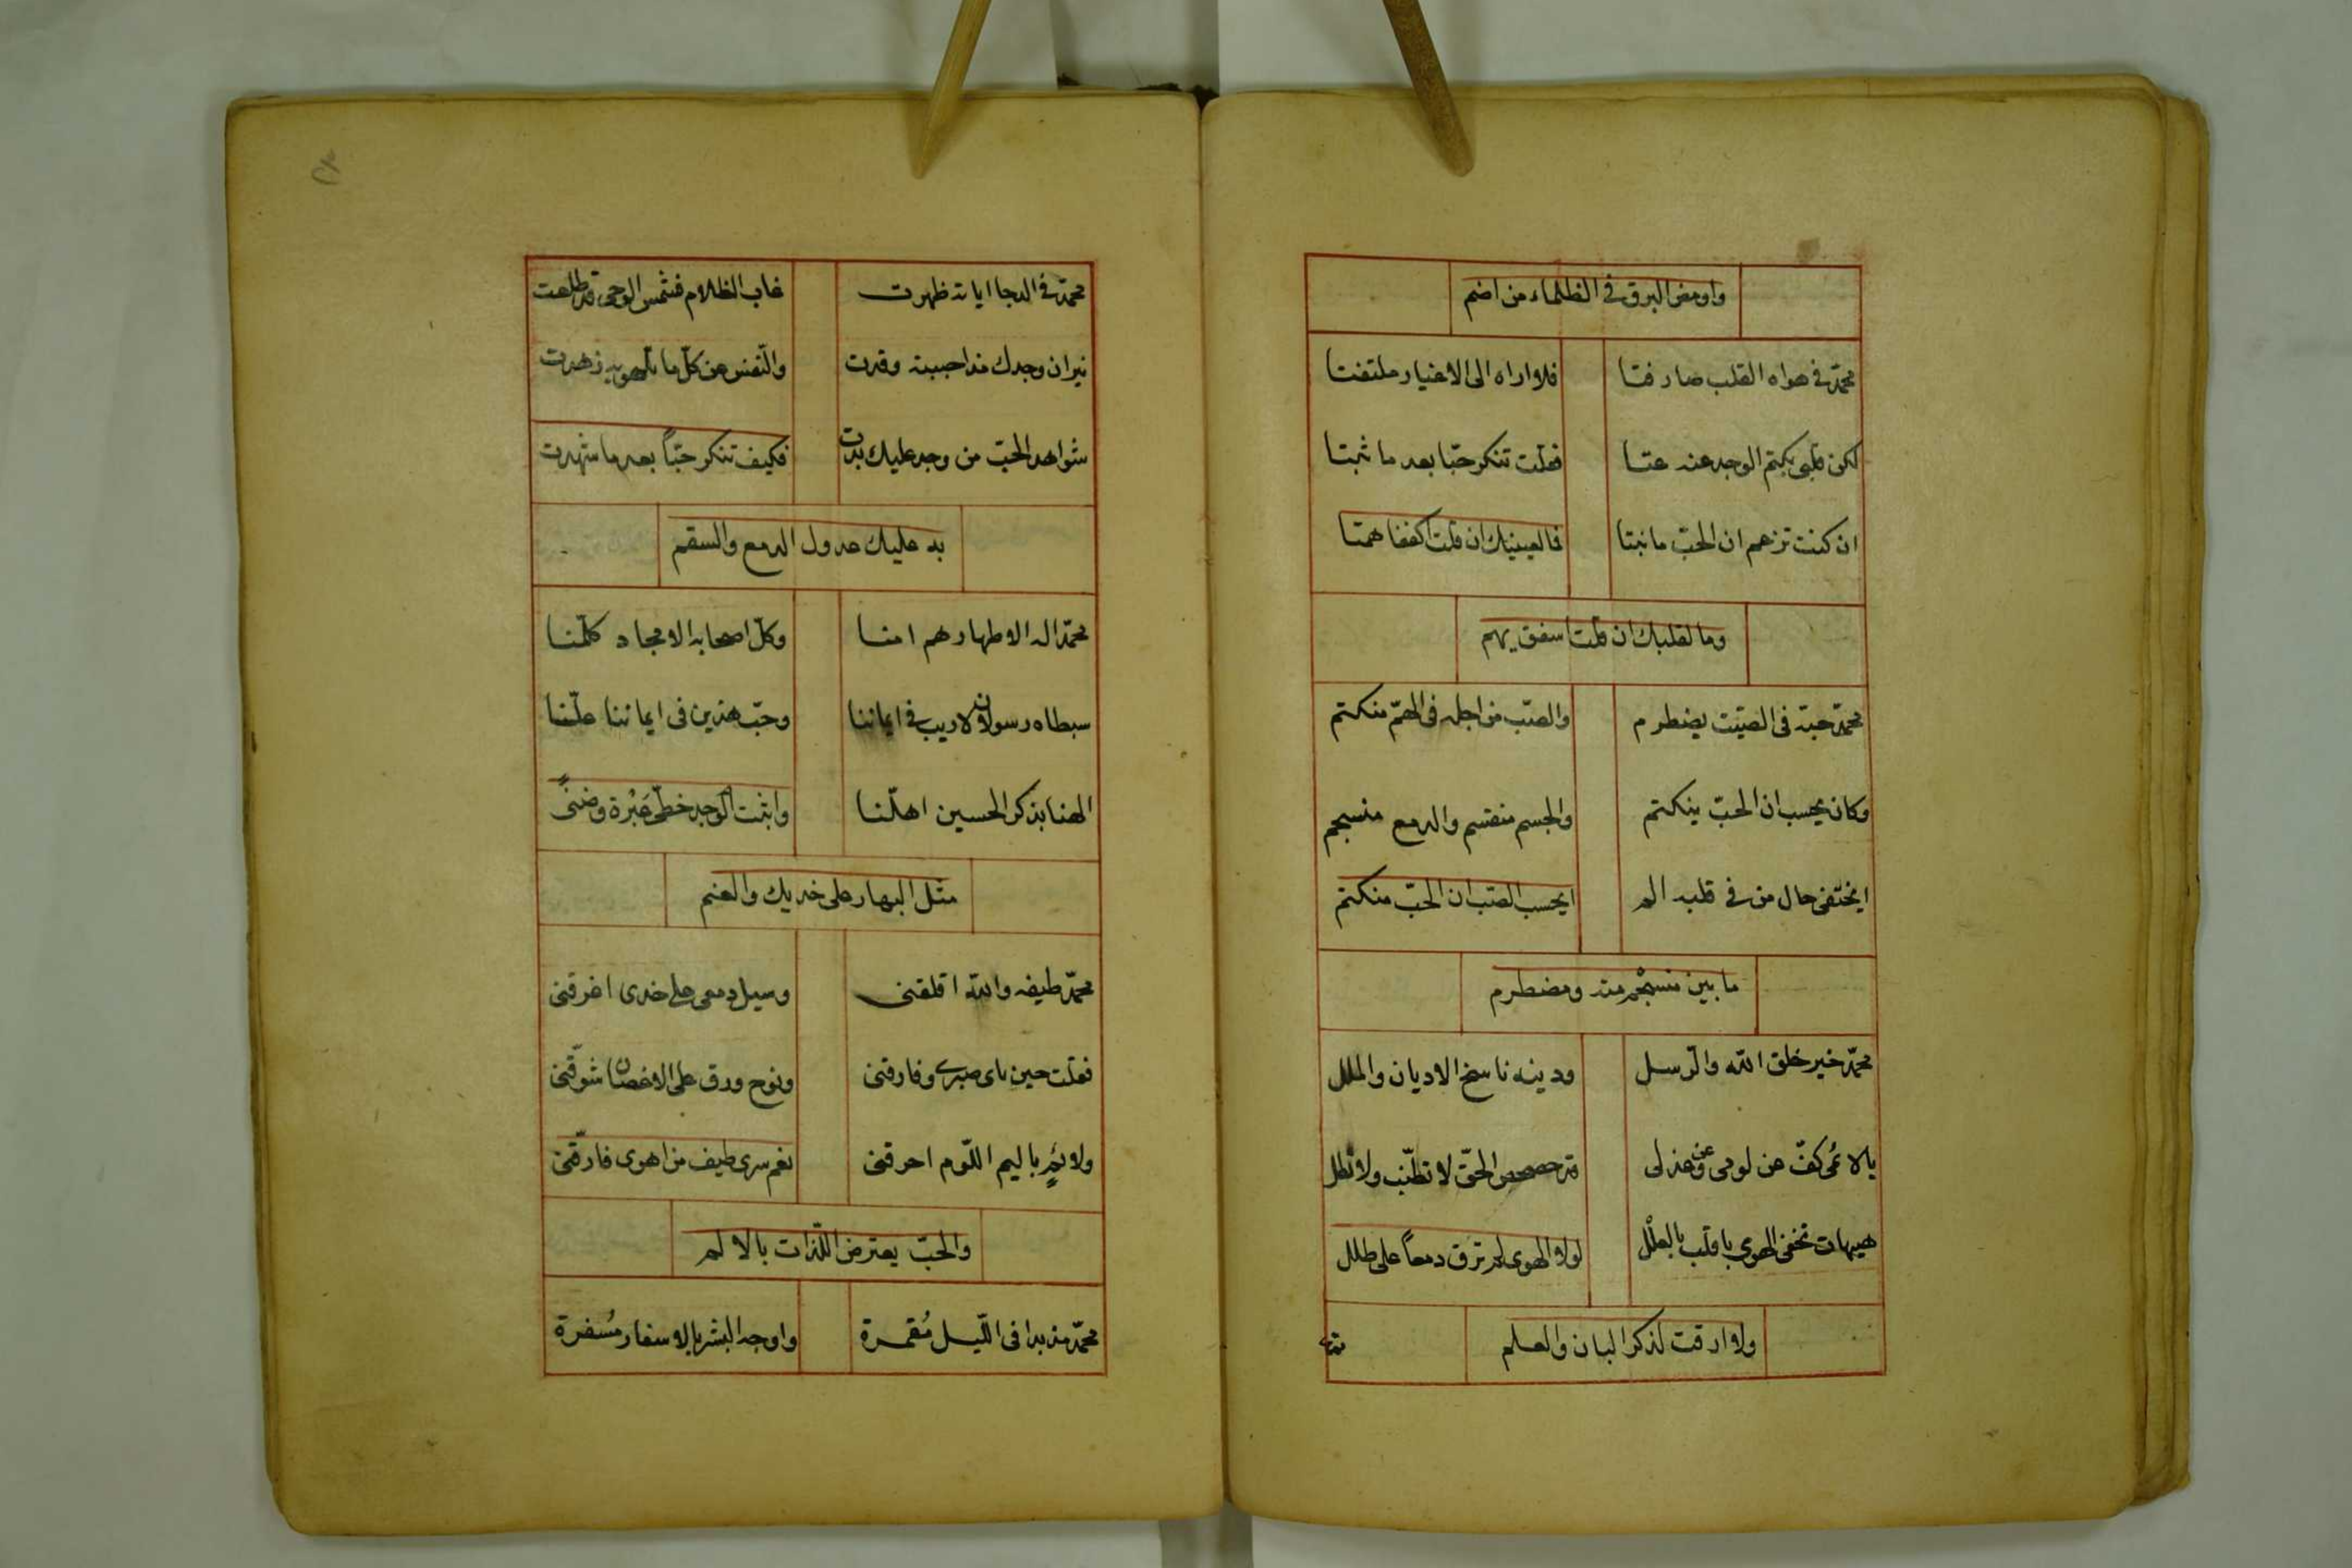 واومض البرق في الظلماء من اضم
محمد في هواه القلب صار فتا فلا اراه الى الاغيار ملتفتا
لكن قلبى بكتم الوجد عنه عتا فقلت تنكر حبّا بعد ما ثبتا
ان كنت تزعم ان الحبّ ما نبتا فما لعينيك ان قلت اكففا همتا
وما لقلبك ان قلت استفق يهم
محمّد حبّه فى الصيّت يضطرم والصبّ من اجله فى الهمّ منكتم
وكان يحسب ان الحبّ ينكتم والجسم منقسم والدمع منسجم
ايختفى حال من في قلبه الم ايحسب الصّب ان الحبّ منكتم
ما بين منسجم منه ومضطرم
محمّد خير خلق الله والرّسل ودينه ناسخ الاديان والملل
يا لائمى كفّ عن لومى وعن عذلى قد حصحص الحقّ لا تطنب ولا تطل
هيهات تخفى الهوى يا قلب بالعلل لولا الهوى لم ترق دمعاً على طلل
ولا ارقت لذكر البان والعلم
محمّد في الدجا اياته ظهرت غاب الظلام فشمس الوحى قد طلعت
نيران وجدك مذ احببته وقدت والنّفس عن كلّ ما زهدت
شواهد الحبّ من وجد عليك بدت فكيف تنكر حبّاً بعد ما شهدت
به عليك عدول الدمع والسقم
محمّد اله الاطهار هم امنا وكلّ اصحابه الامجاد كلّمنا
سبطاه رسولان لا ريب في ايماننا وحبّ هذين فى ايماننا علّنا
الهنا بذكر الحسين اهلّنا واثبت الوجد خطّى عَبْرة وضنًى
مثل البهار على خديك والعنم
محمّد طيفه والله اقلقنى وسيل دمعى على خدى اغرقنى
فقلت حين ناى صبرى وفارقنى ونوح ورق على الاغصان شوّقنى
ولائم باليم اللّوم احرقنى نعم سرى طيف من اهوى فارّقنى
والحبّ يعترض اللّذات بالالم
محمّد مذ بدا فى اللّيل مُقمرة واوجه البشر بالاسفار مُسفرة